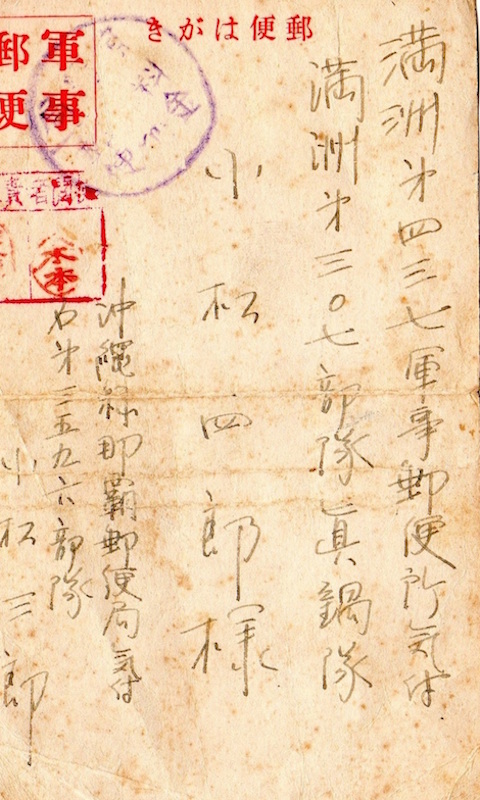 郵便はがき
軍事
郵便
満洲第四三七軍事郵便所気付
満洲第三〇七部隊眞鍋隊
小松四郎様
沖縄縣那覇郵便局気付
第三五九六部隊
小松三郎